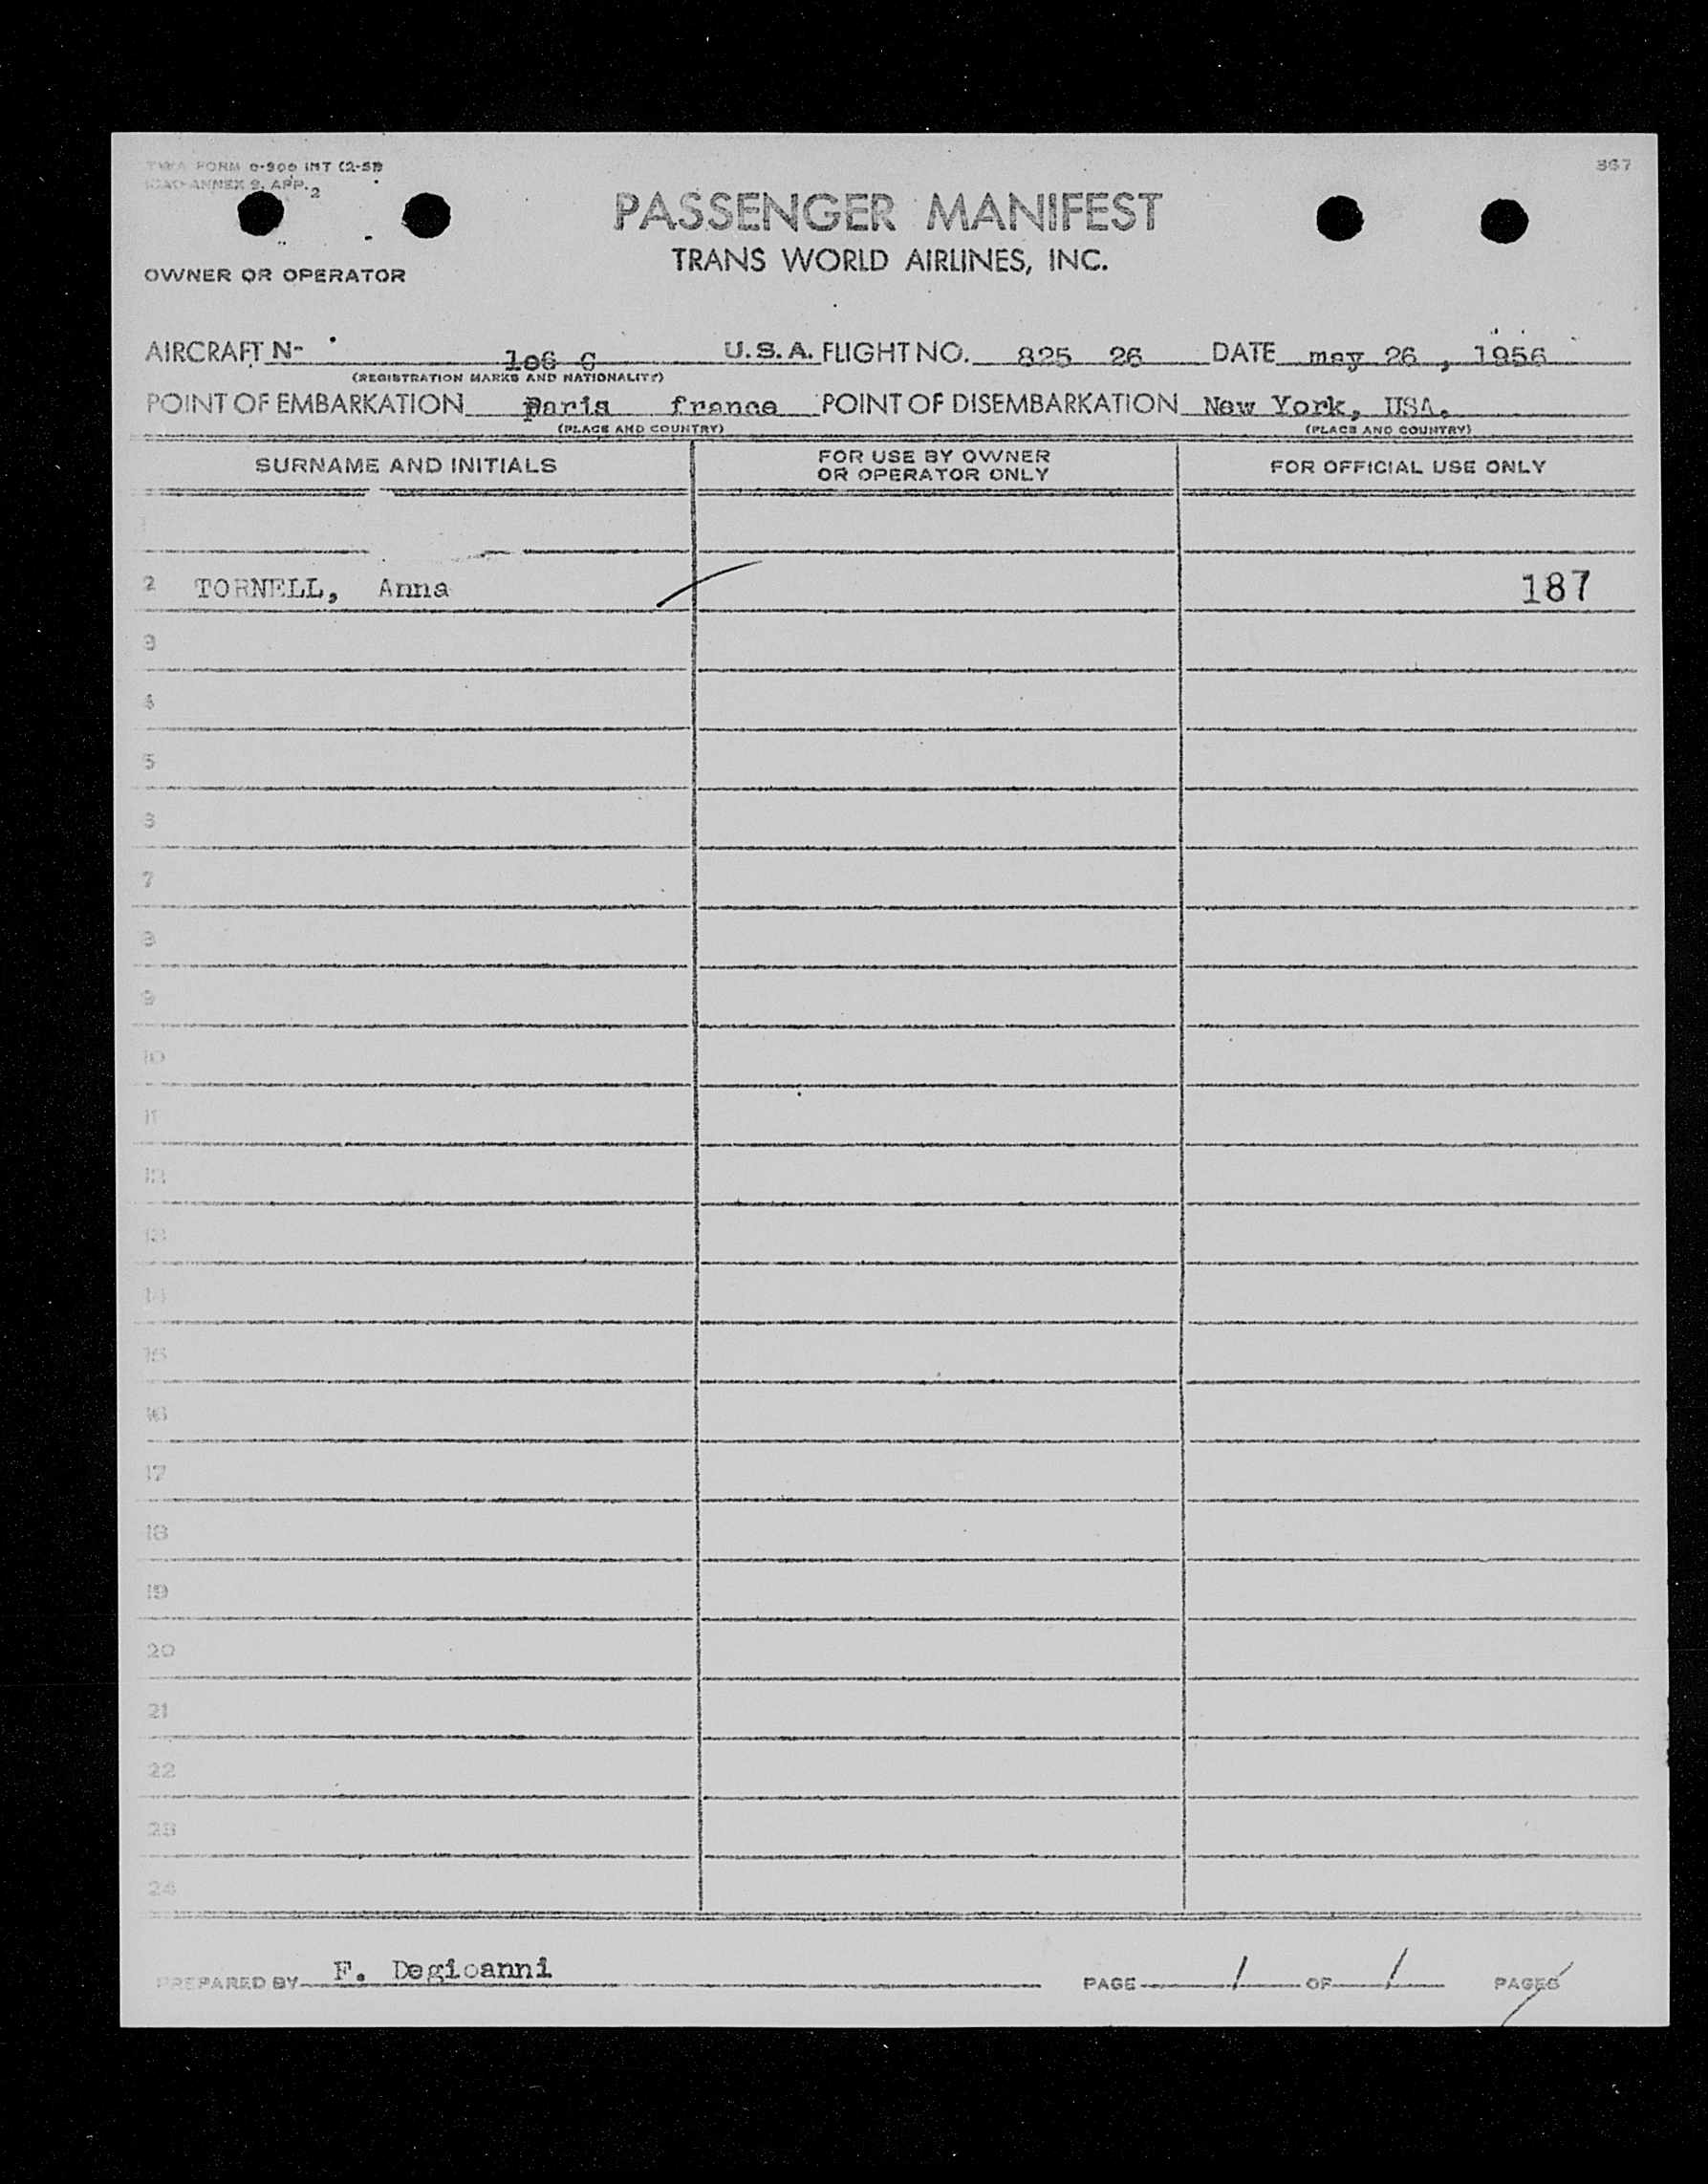 TWA FORM 0-900 INT (2-51)
ICAO ANNEX 9, APP. 2
367
PASSENGER MANIFEST
TRANS WORLD AIRLINES, INC.
OWNER OR OPERATOR
AIRCRAFT N- 106 C U.S.A. FLIGHT NO. 825 26 DATE may 26 , 1956
(REGISTRATION MARKS AND NATIONALITY)
POINT OF EMBARKATION Paris france POINT OF DISEMBARKATION New York, USA.
(PLACE AND COUNTRY) (PLACE AND COUNTRY)
SURNAME AND INITIALS FOR USE BY OWNER OR OPERATOR ONLY FOR OFFICIAL USE ONLY
1
2 TORNELL, Anna 187
3
4
5
6
7
8
9
10
11
12
13
14
15
16
17
18
19
20
21
22
23
24
PREPARED BY F. Degioanni PAGE 1 OF 1 PAGES